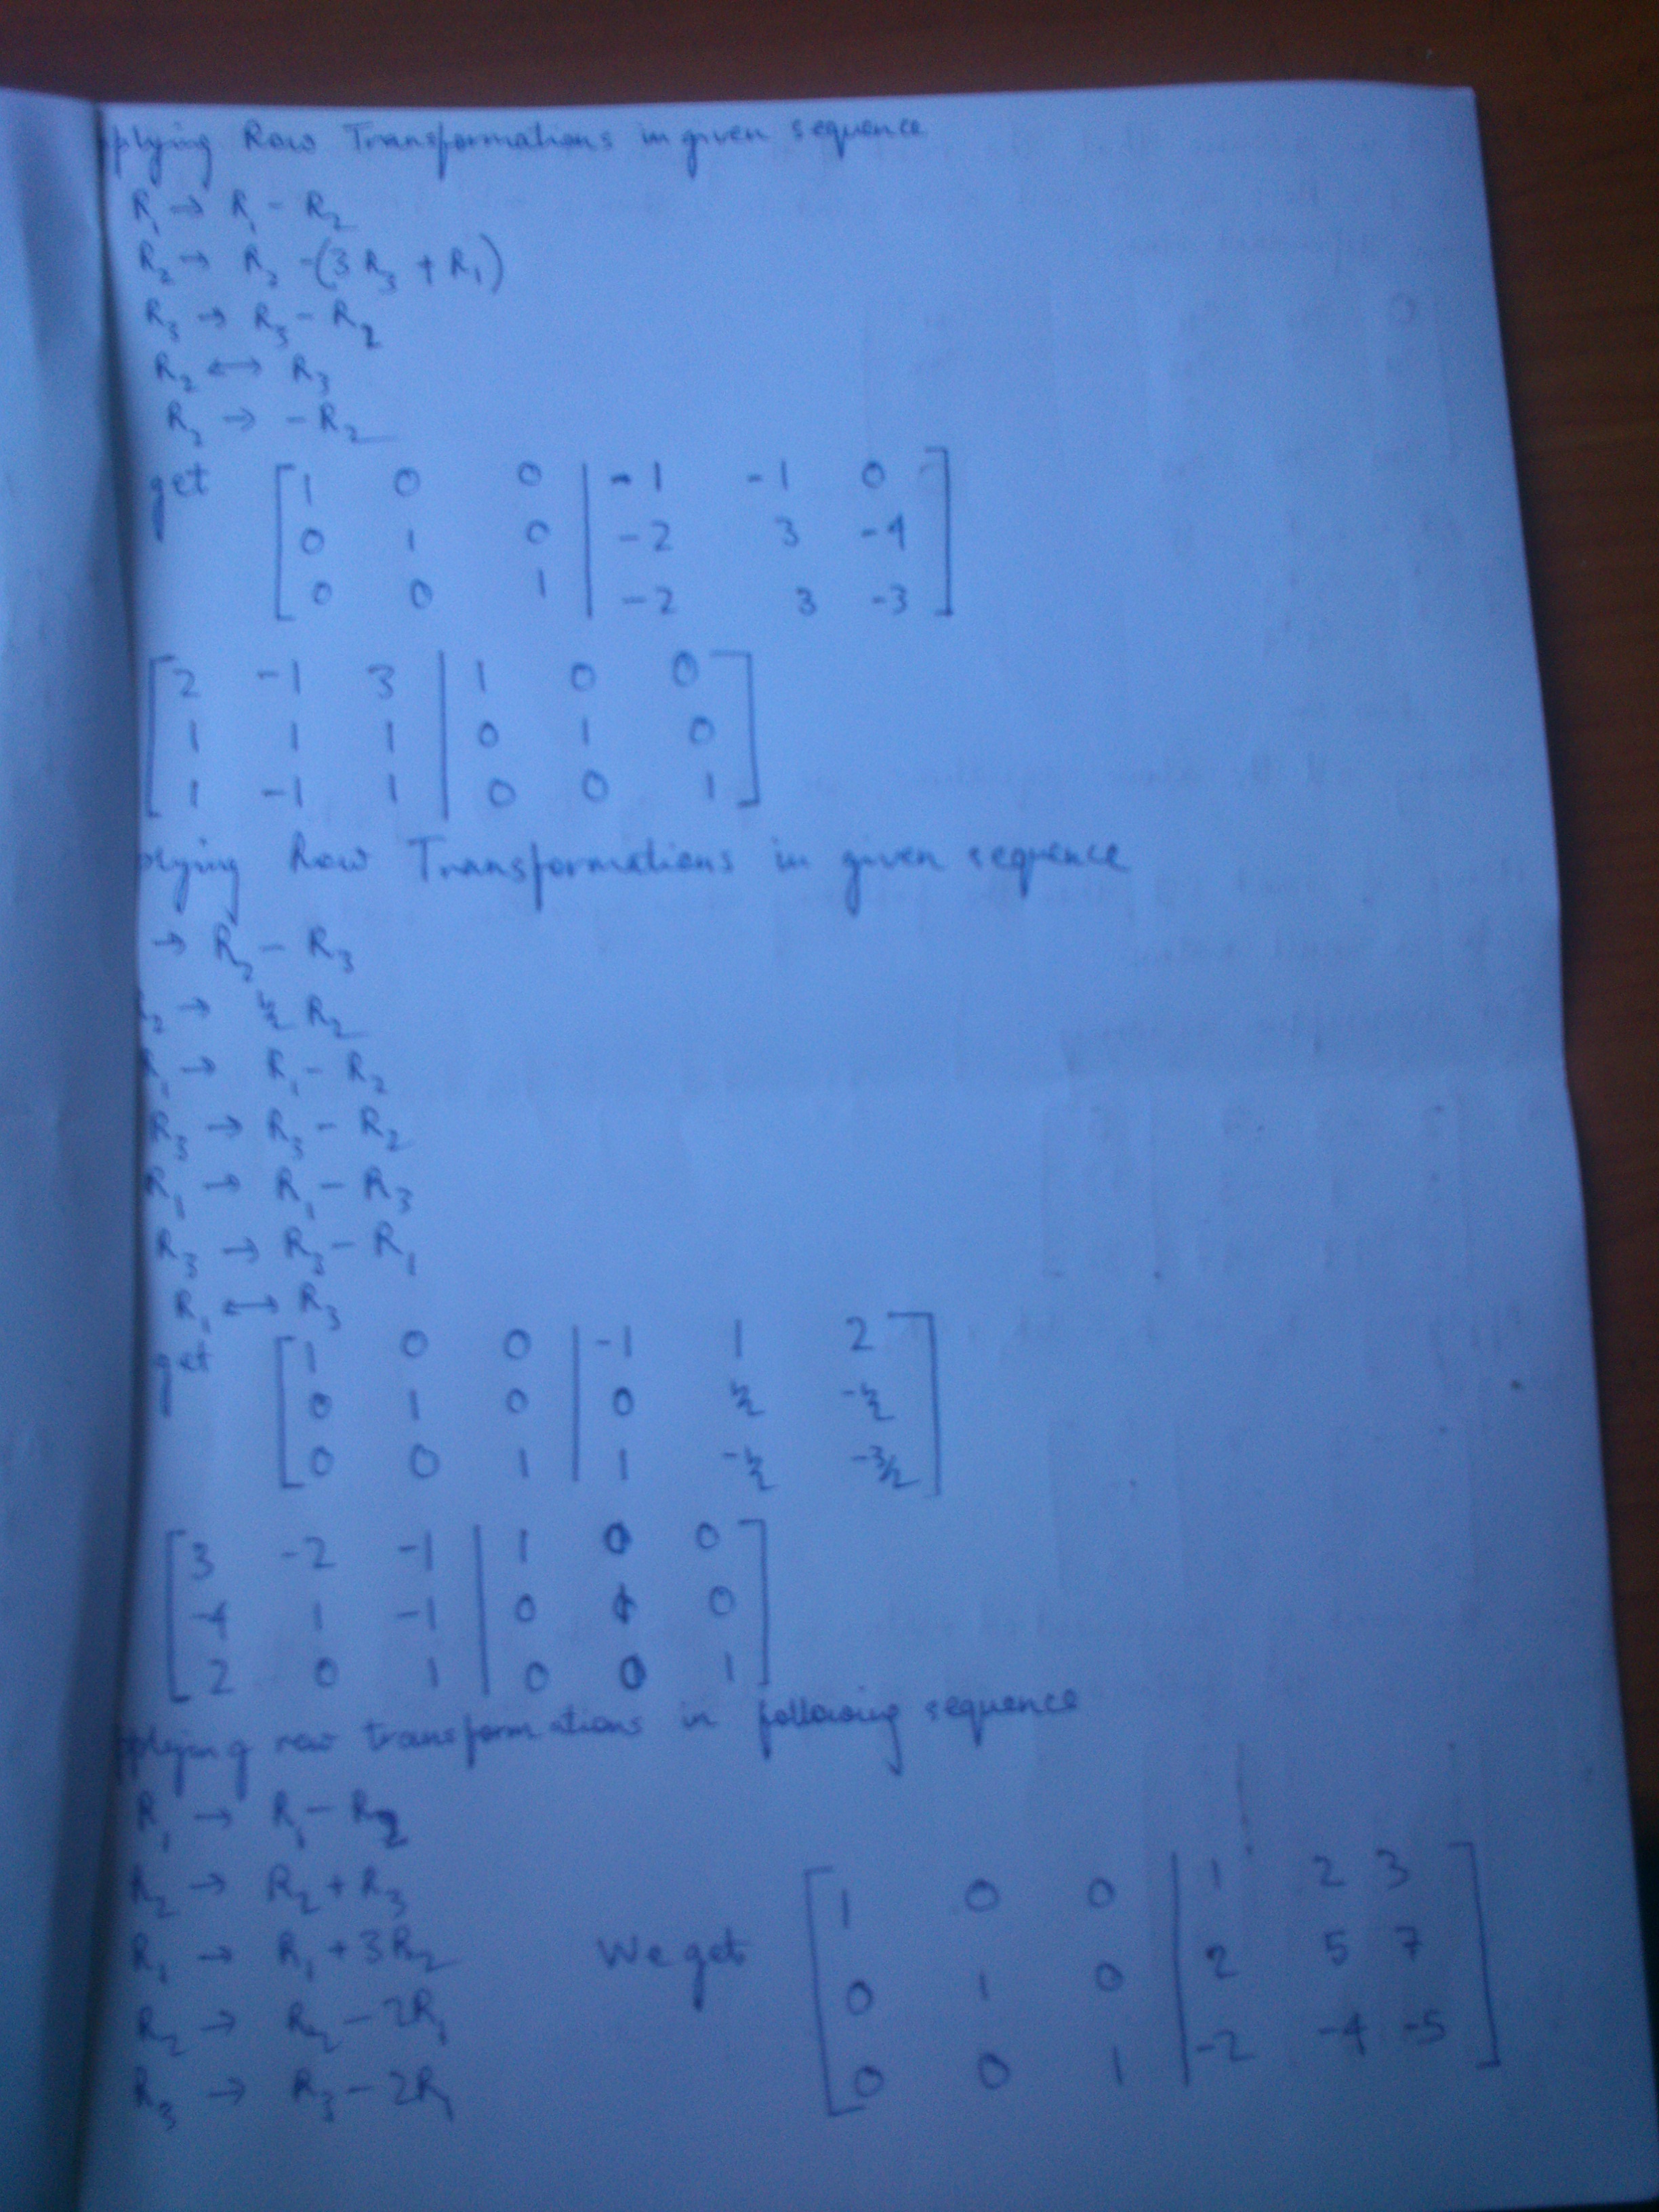 pplying Row Transformations in given sequence
R₁ → R₁ - R₂
R₂ → R₂ -(3R₃ + R₁)
R₃ → R₃ - R₂
R₂ ↔ R₃
R₂ → -R₂
get [1 0 0 | -1 -1 0
0 1 0 | -2 3 -4
0 0 1 | -2 3 -3]
[2 -1 3 | 1 0 0
1 1 1 | 0 1 0
1 -1 1 | 0 0 1]
plying Row Transformations in given sequence
→ R₂ - R₃
₂ → ½ R₂
R₁ → R₁ - R₂
R₃ → R₃ - R₂
R₁ → R₁ - R₃
R₃ → R₃ - R₁
R₁ ↔ R₃
get [1 0 0 | -1 1 2
0 1 0 | 0 ½ -½
0 0 1 | 1 -½ -3/2]
[3 -2 -1 | 1 0 0
-4 1 -1 | 0 1 0
2 0 1 | 0 0 1]
pplying row transformations in following sequence
R₁ → R₁ - R₂
R₂ → R₂ + R₃
R₁ → R₁ + 3R₂
R₂ → R₂ - 2R₁
R₃ → R₃ - 2R₁
We get [1 0 0 | 1 2 3
0 1 0 | 2 5 7
0 0 1 | -2 -4 -5]